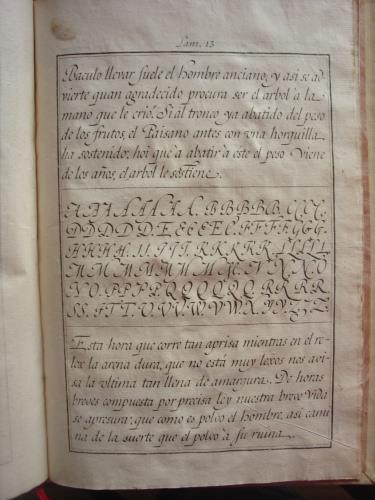 Lam. 13
Baculo llevar suele el Hombre anciano, y asi se ad
vierte quan agradecido procura ser el arbol à la
mano que le crió. Si al tronco ya abatido del peso
de los frutos, el Paisano antes con vna horguilla
ha sostenido; hoi que a abatir à este el peso Viene
de los años, el arbol le sostiene.
A.A.A.A.A.A.A.B.B.B.B.B.C.C.C.
D.D.D.D.D.E.E.E.E.E.F.F.F.F.G.G.G.
H.H.H.H.I.I.I.I.I.K.K.K.K.K.L.L.L.L.L.
M.M.M.M.M.M.M.M.N.N.N.O.
N.O.P.P.P.P.Q.Q.Q.Q.Q.R.R.R.R.
S.S.T.T.T.V.V.V.W.V.W.X.Y.Y.Z.Z.
Esta hora que corre tan aprisa mientras en el re-
lox la arena dura, que no está muy lexos nos avi-
sa la vltima tan llena de amargura. De horas
breves compuesta por precisa ley nuestra breve Vida
se apresura; que como es polvo el Hombre, asi cami
na de la suerte que el polvo à su ruina.